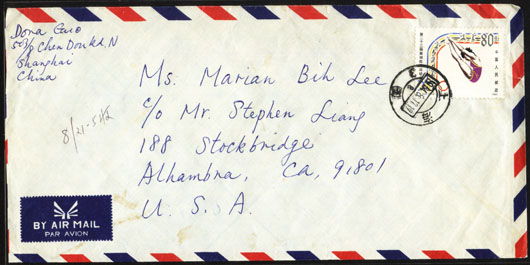 Dora Guo
Chen Dou Rd. N
Shanghai
China
80
Ms. Marian Bih Lee
c/o Mr. Stephen Liang
188 Stockbridge
Alhambra, Ca, 91801
U. S. A.
上海
BY AIR MAIL
PAR AVION